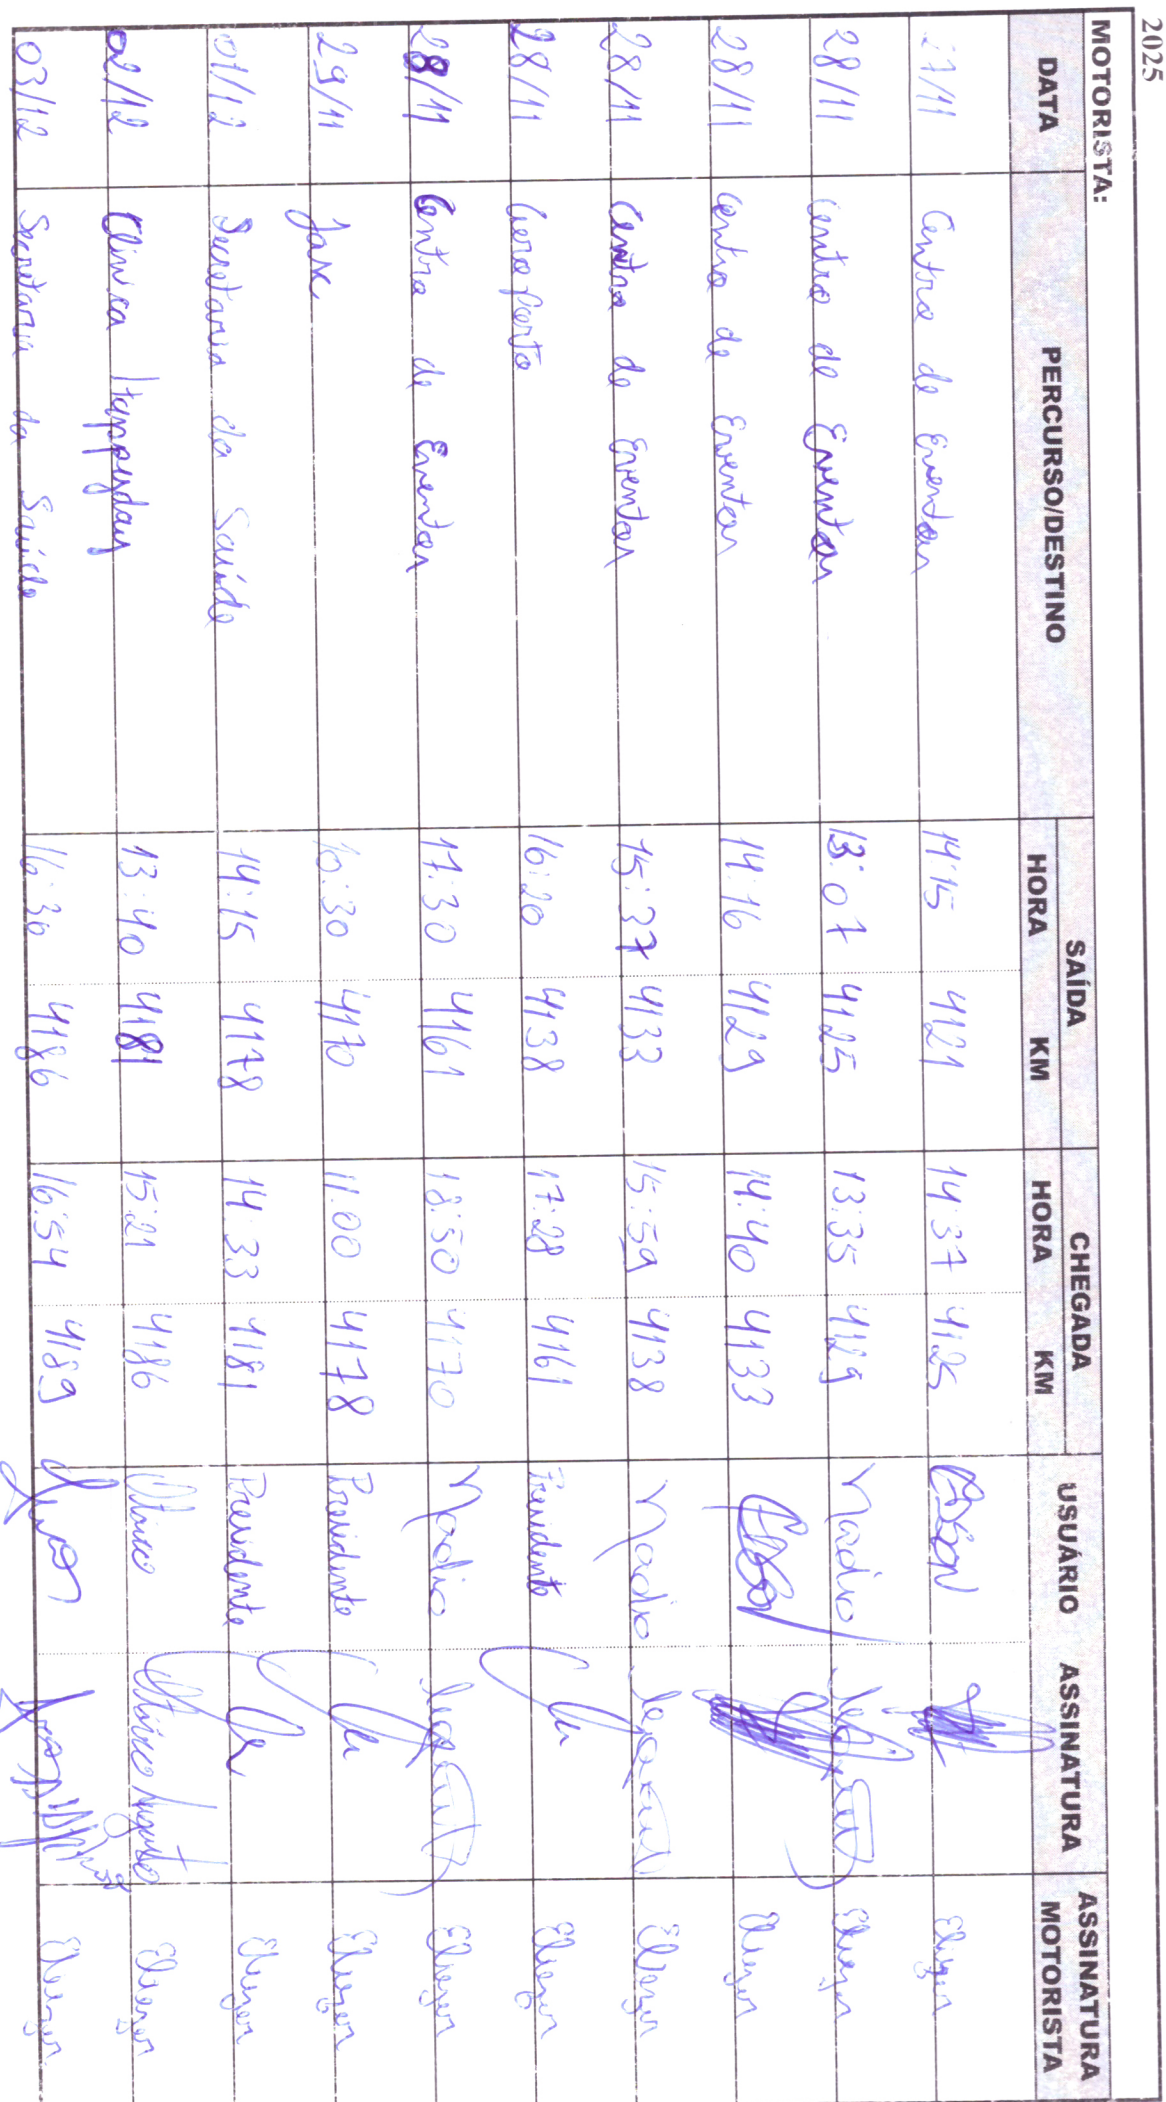 2025
MOTORISTA:
DATA PERCURSO/DESTINO SAÍDA HORA KM CHEGADA HORA KM USUÁRIO ASSINATURA ASSINATURA MOTORISTA
27/11 Centro de Eventos 14:15 4121 14:37 4125 Elizer
28/11 Centro de Eventos 13:07 4125 13:35 4129 Nadio Eliezer
28/11 Centro de Eventos 14:16 4129 14:40 4133 Eliezer
28/11 Centro de Eventos 15:37 4133 15:59 4138 Nadio Eliezer
28/11 Aeroporto 16:20 4138 17:28 4161 Presidente Eliezer
28/11 Centro de Eventos 17:30 4161 18:50 4170 Nadio Eliezer
29/11 10:30 4170 11:00 4178 Presidente Eliezer
01/12 Secretaria da Saúde 14:15 4178 14:33 4181 Presidente Eliezer
02/12 Clinica 13:40 4181 15:21 4186 Eliezer
03/12 Secretaria da Saúde 16:30 4186 16:54 4189 Eliezer